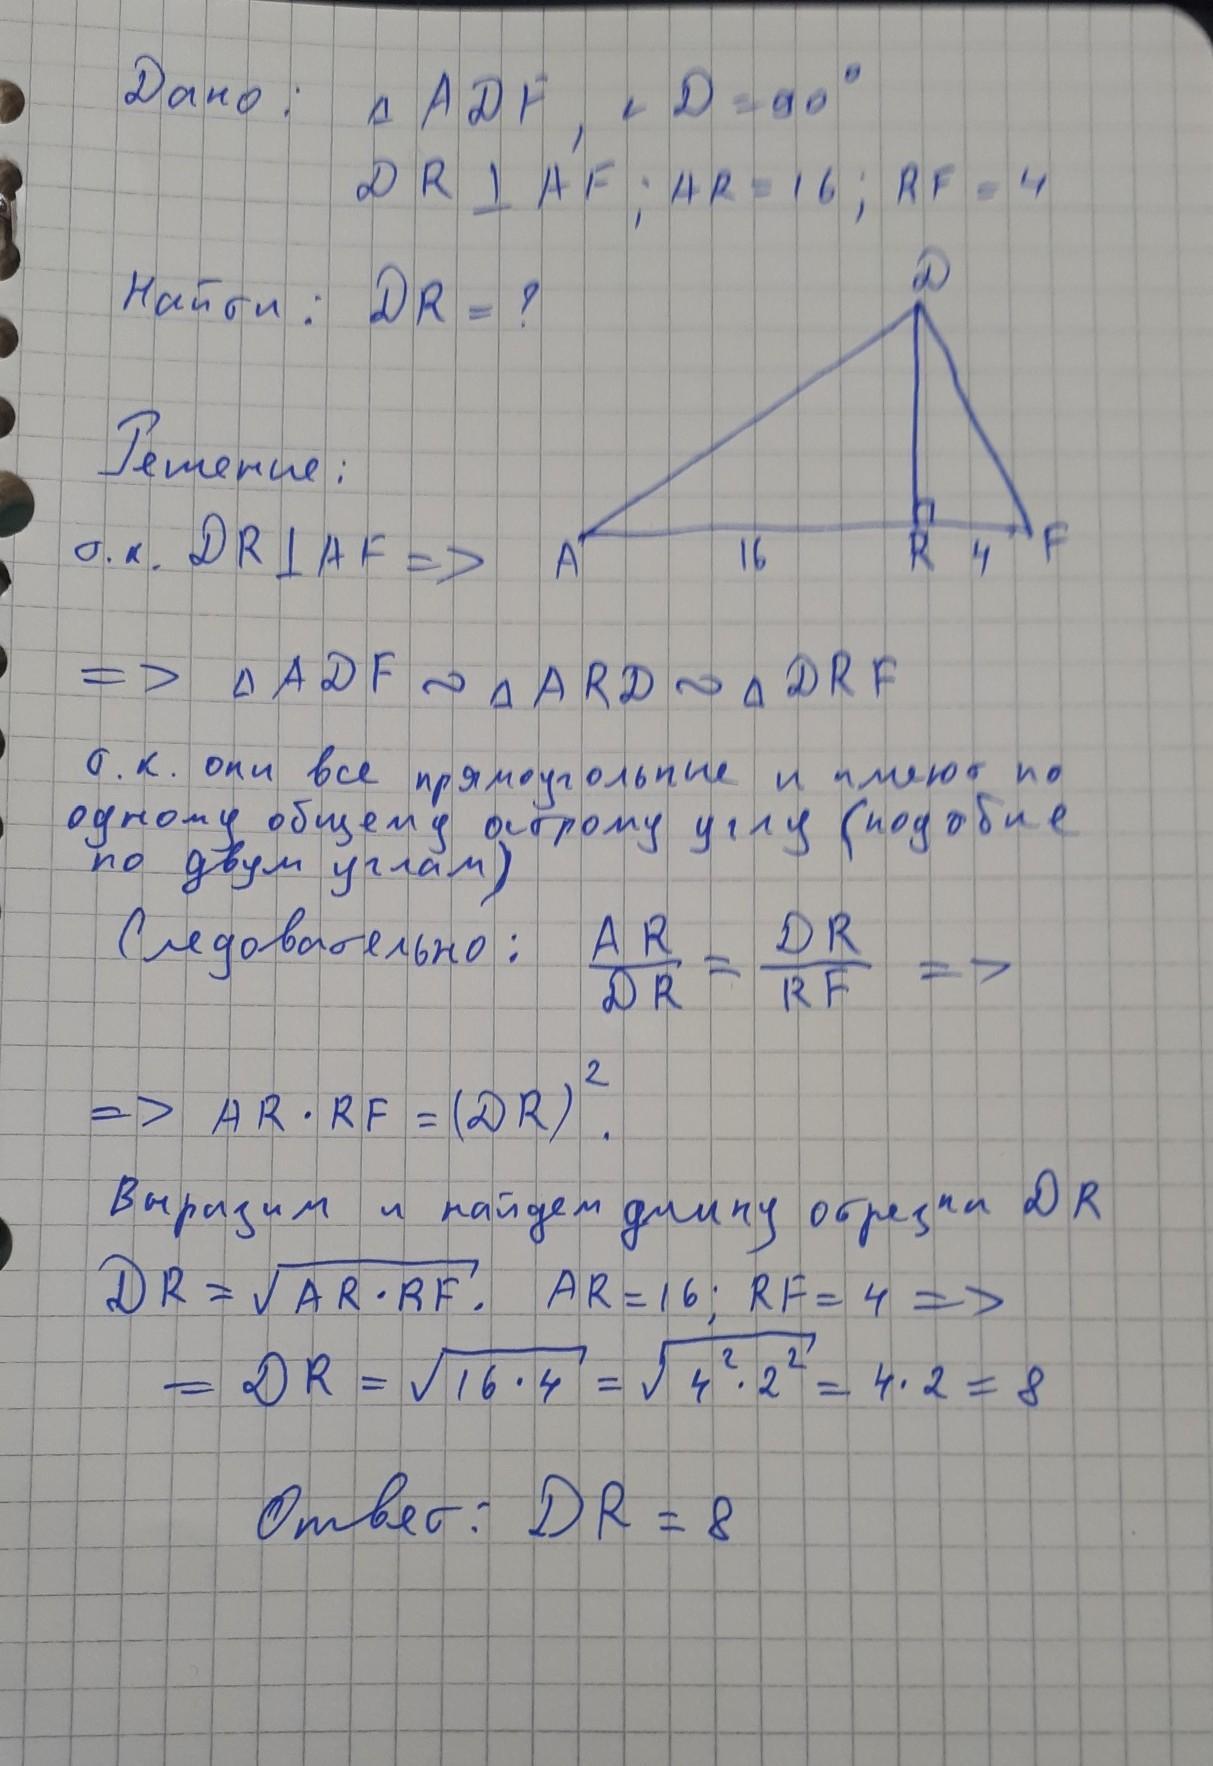 Дано: △ ADF, ∠D = 90°
DR ⊥ AF; AR = 16; RF = 4
Найти: DR = ?
D
Решение:
т.к. DR ⊥ AF =>
A 16 R 4 F
=> △ ADF ∾ △ ARD ∾ △ DRF
т.к. они все прямоугольные и имеют по
одному общему острому углу (подобие
по двум углам)
Следовательно: AR/DR = DR/RF =>
=> AR · RF = (DR)².
Выразим и найдем длину отрезка DR
DR = √(AR · RF). AR = 16; RF = 4 =>
= DR = √(16 · 4) = √(4² · 2²) = 4 · 2 = 8
Ответ: DR = 8